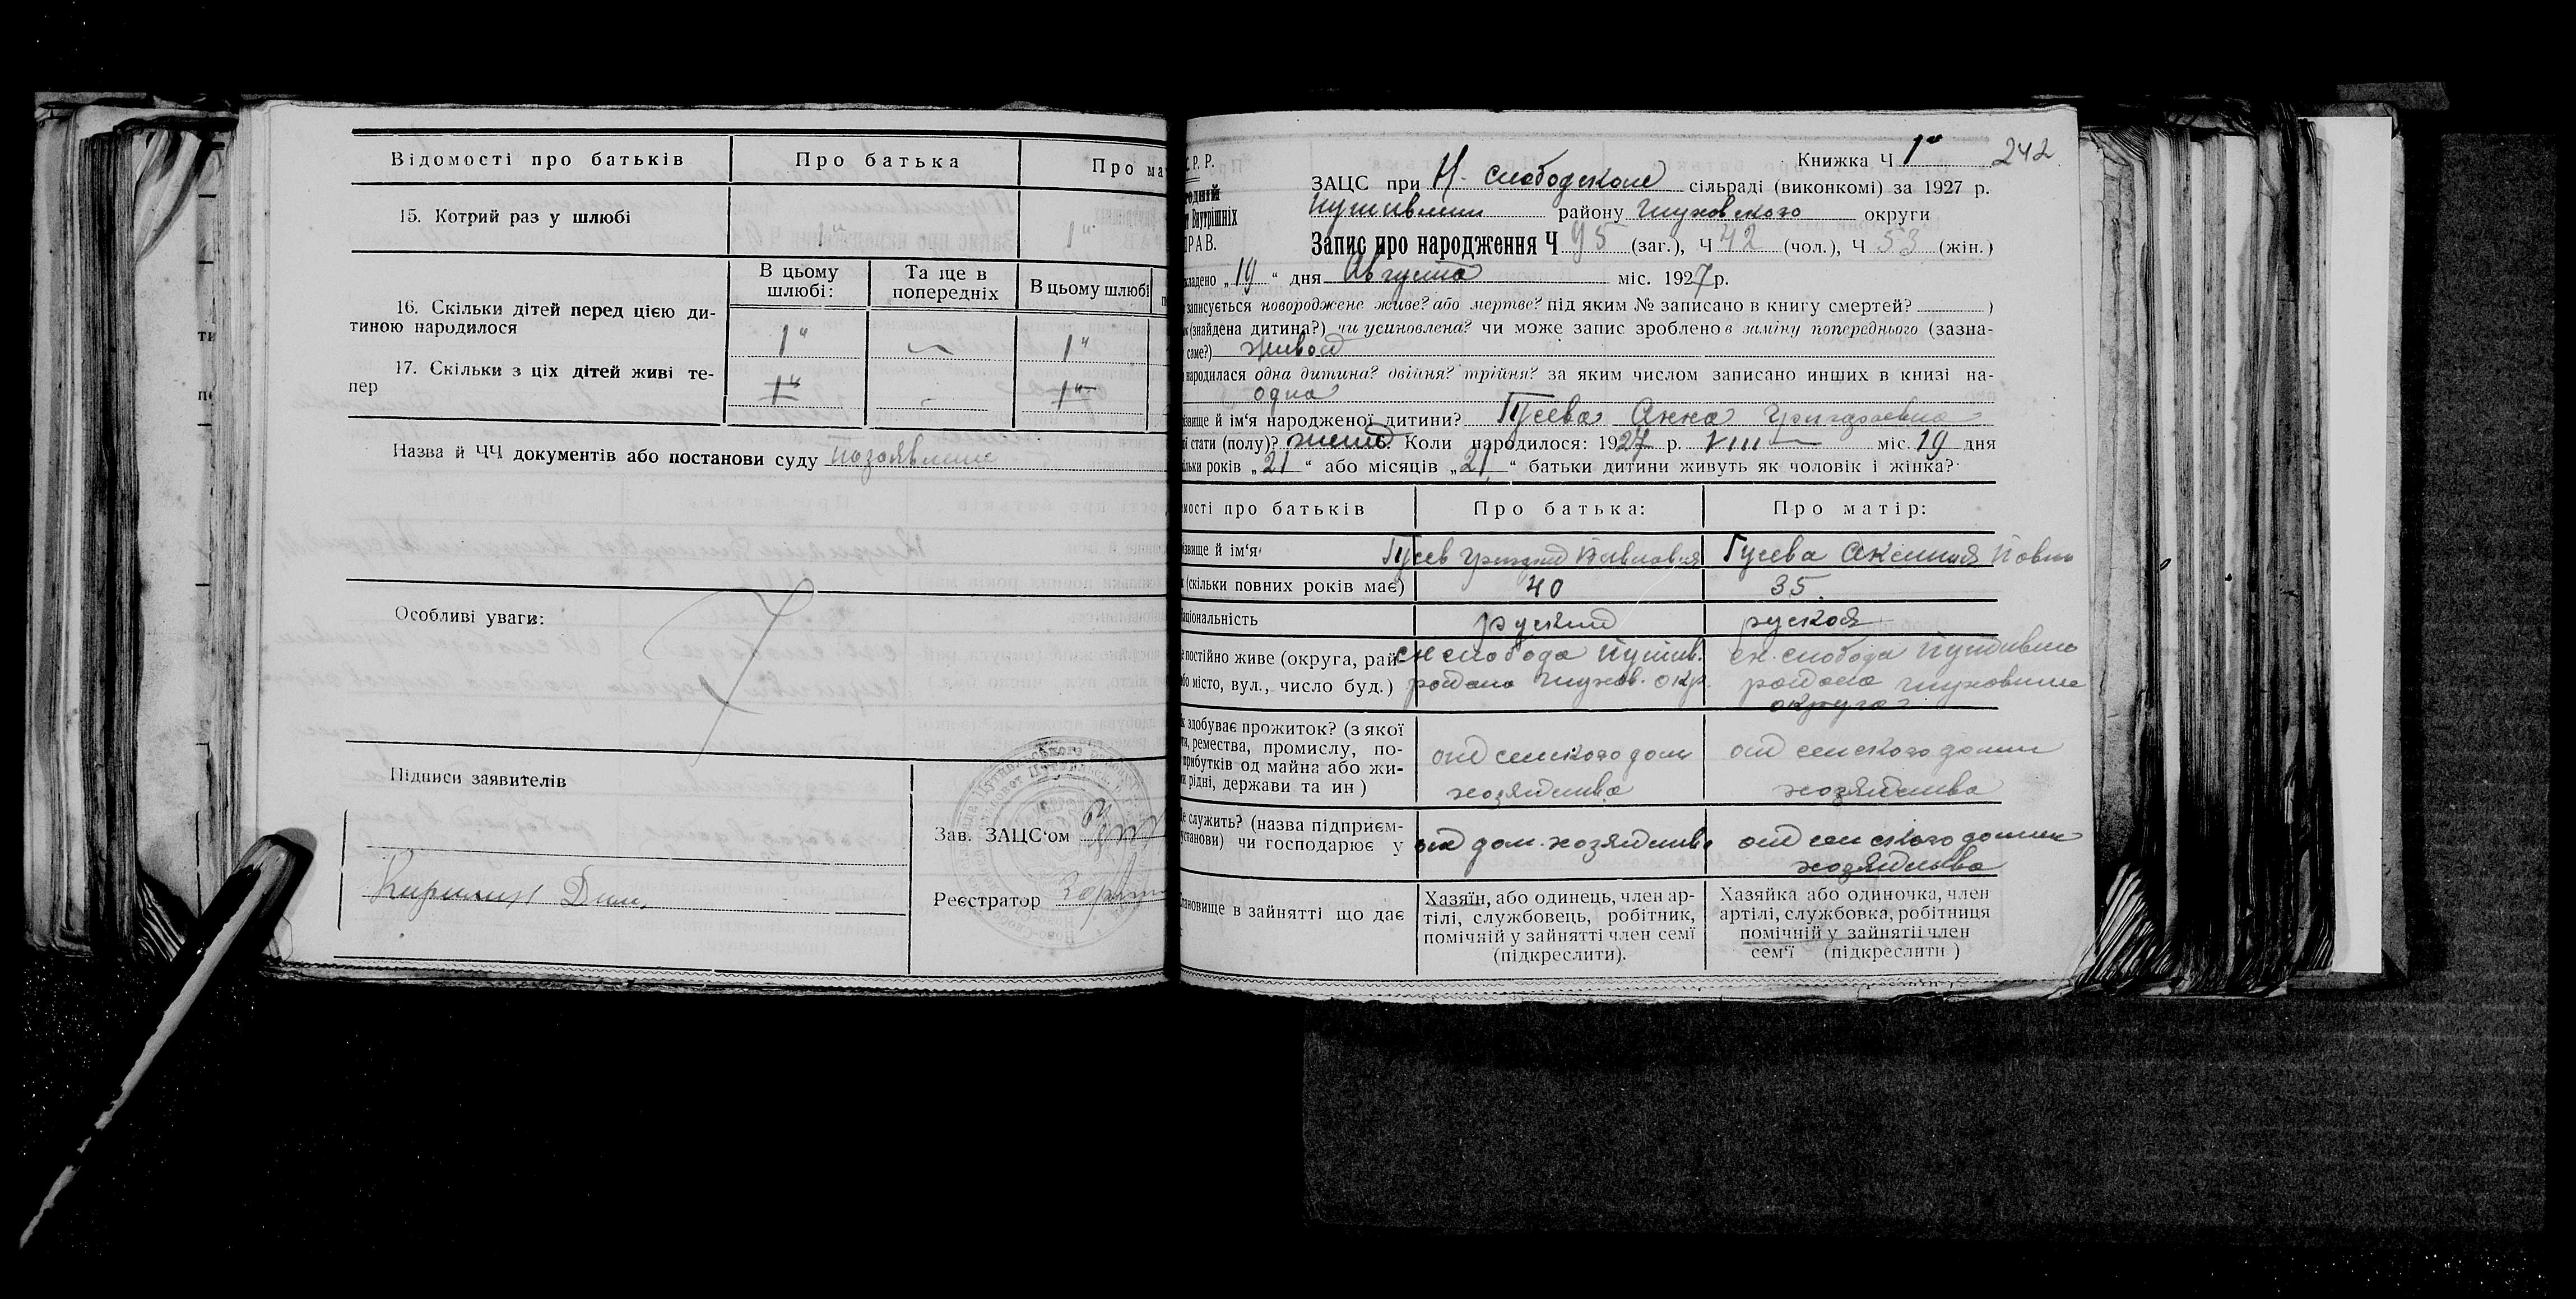 Відомості про батьків
Про батька
Про ма
15. Котрий раз у шлюбі
1"
1"
В цьому шлюбі:
Та ще в попередніх
В цьому шлюбі
16. Скільки дітей перед цією ди-
тиною народилося
1"
1"
17. Скільки з ціх дітей живі те-
пер
1"
1"
Назва й ЧЧ документів або постанови суду
Особливі уваги:
Підписи заявителів
Зав. ЗАЦС'ом
Реєстратор
Книжка Ч 1" 242
С. Р. Р.
ЗАЦС при Н. слободском сільраді (виконкомі) за 1927 р.
Внутрішніх
району Глуховского округи
ПРАВ.
Запис про народження Ч 95 (заг.), Ч 42 (чол.), Ч 53 (жін.)
кладено „19“ дня Августа міс. 1927 р.
записується новороджене живе? або мертве? під яким № записано в книгу смертей? )
(знайдена дитина?) чи усиновлена? чи може запис зроблено в заміну попереднього (зазна-
саме?) живой
народилася одна дитина? двійня? трійня? за яким числом записано инших в книзі на-
одна
звище й ім'я народженої дитини? Гусева Анна Григорьевна
стати (полу)? женс. Коли народилося: 1927 р. VIII міс. 19 дня
ільки років „21“ або місяців „21“ батьки дитини живуть як чоловік і жінка?
мості про батьків
Про батька:
Про матір:
ізвище й ім'я
Гусев Григорий Павлович
Гусева
(скільки повних років має)
40
35.
аціональність
руский
руская
постійно живе (округа, рай
бо місто, вул., число буд.)
сн слобода Путив.
района Глухов. окр.
сн. слобода
района
округа
к здобуває прожиток? (з якої
ти, ремества, промислу, по-
прибутків од майна або жи-
ки рідні, держави та ин)
от сельского дом
хозяйства
от сельского домаш
хозяйства
Де служить? (назва підприєм-
установи) чи господарює у
от дом. хозяйства
от сельского домаш
хозяйства
тановище в зайнятті що дає
Хазяїн, або одинець, член ар-
тілі, службовець, робітник,
помічній у зайнятті член семї
(підкреслити).
Хазяйка або одиночка, член
артілі, службовка, робітниця
помічній у зайнятіі член
сем'ї (підкреслити )